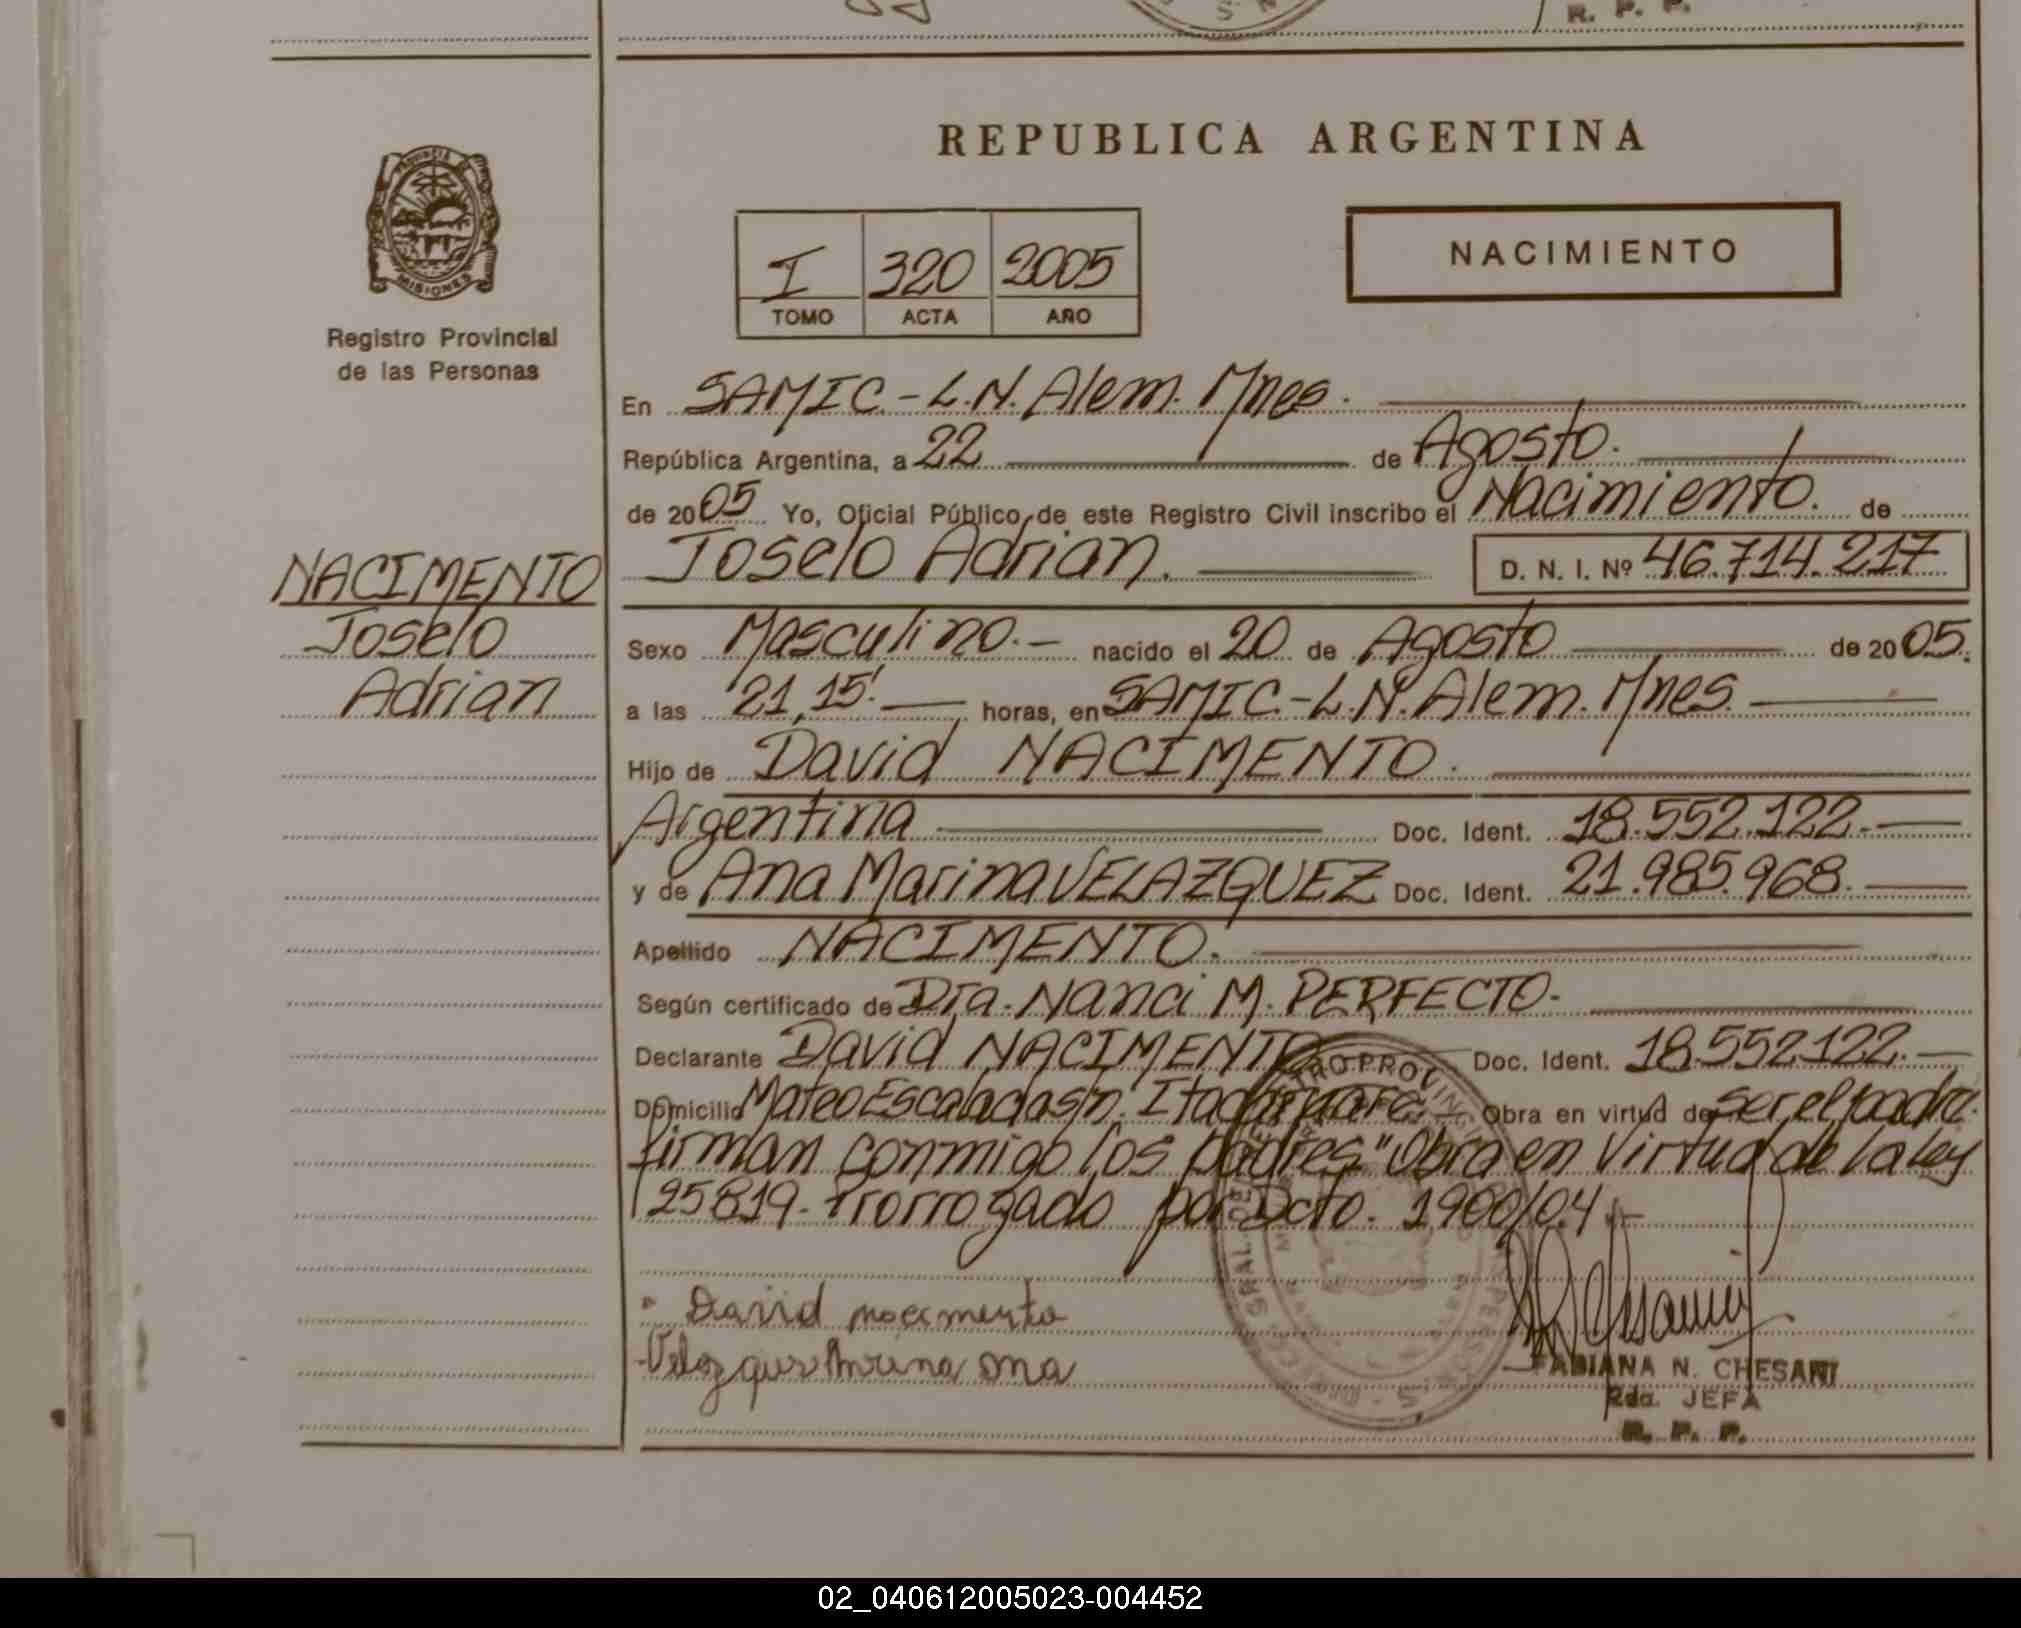 R. P. P.
REPUBLICA ARGENTINA
MISIONES
Registro Provincial
de las Personas
I 320 2005
TOMO ACTA AÑO
NACIMIENTO
En SAMIC.-L.N.Alem. Mnes.
República Argentina, a 22 de Agosto.
de 2005 Yo, Oficial Público de este Registro Civil inscribo el Nacimiento. de
Joselo Adrian. D. N. I. Nº 46.714.217
NACIMENTO
Joselo
Adrian
Sexo Masculino.- nacido el 20 de Agosto de 2005.
a las 21,15'. horas, en SAMIC.-L.N.Alem. Mnes.
Hijo de David NACIMENTO.
Argentina Doc. Ident. 18.552.122.
y de Ana Marina VELAZQUEZ Doc. Ident. 21.985.968.
Apellido NACIMENTO.
Según certificado de Dra. Nanci M. PERFECTO.
Declarante David NACIMENTO Doc. Ident. 18.552122.
Domicilio Mateo Escalada s/n. Obra en virtud de ser el padre.
firman conmigo los padres" Obra en Virtud de la ley
25819. Prorrogado por Dcto. 1900/04.-
David nacimento
Velazques Marina ana
FABIANA N. CHESANI
2da. JEFA
R. P. P.
02_040612005023-004452